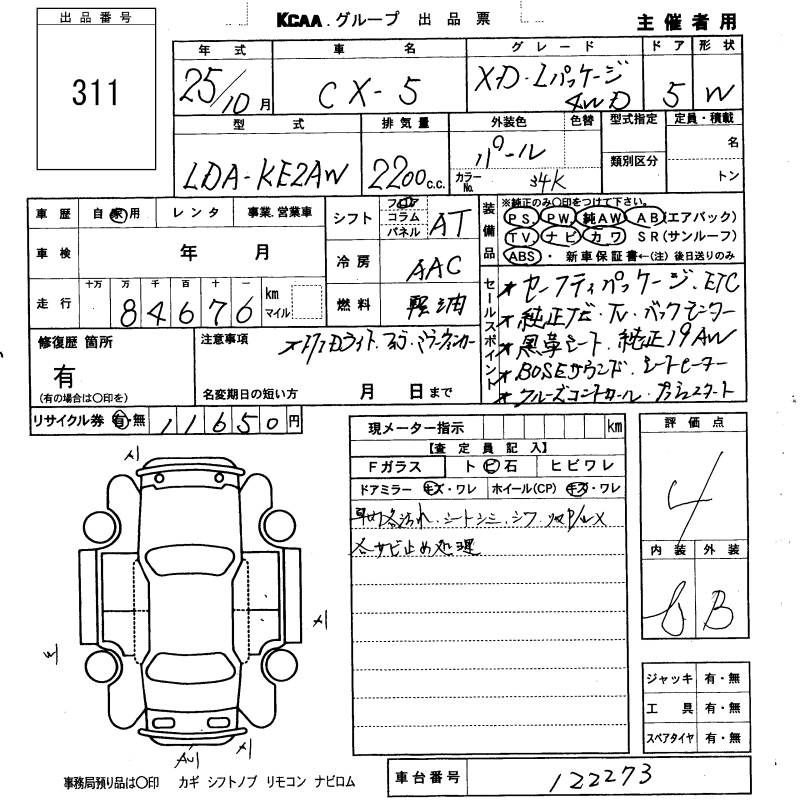 出品番号
311
KCAA.グループ 出品票
主催者用
年式 車名 グレード ドア 形状
25/10月 CX-5 XD・Lパッケージ 4WD 5 W
型式 排気量 外装色 色替 型式指定 定員・積載
LDA-KE2AW 2200c.c. パール
カラーNo. 34K
類別区分
名
トン
車歴 自家用 レンタ 事業.営業車
車検 年 月
走行 十万 万 千 百 十 一
84676 km マイル
シフト フロア コラム パネル AT
冷房 AAC
燃料 軽油
装備品
※純正のみ○印をつけて下さい。
PS PW 純AW AB(エアバック)
TV ナビ カワ SR(サンルーフ)
ABS・新車保証書←(注)後日送りのみ
セールスポイント
★セーフティパッケージ・ETC
★純正ナビ・TV・バックモニター
★黒革シート・純正19AW
★BOSEサウンド・シートヒーター
★クルーズコントロール・プッシュスタート
修復歴 箇所
有
(有の場合は○印を)
注意事項
ライト・フォグ・ミラーウィンカー
名変期日の短い方 月 日まで
リサイクル券 有・無 11650円
現メーター指示 km
【査定員記入】
Fガラス トビ石 ヒビワレ
ドアミラー キズ・ワレ ホイール(CP) キズ・ワレ
シートシミ・シワ
サビ止め処理
評価点
4
内装 外装
B
ジャッキ 有・無
工具 有・無
スペアタイヤ 有・無
事務局預り品は○印 カギ シフトノブ リモコン ナビロム
車台番号 122273